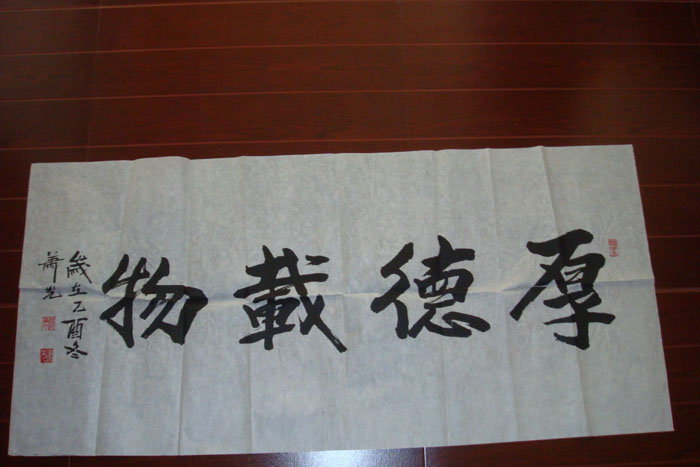 厚德載物
歲在乙酉冬
蕭光